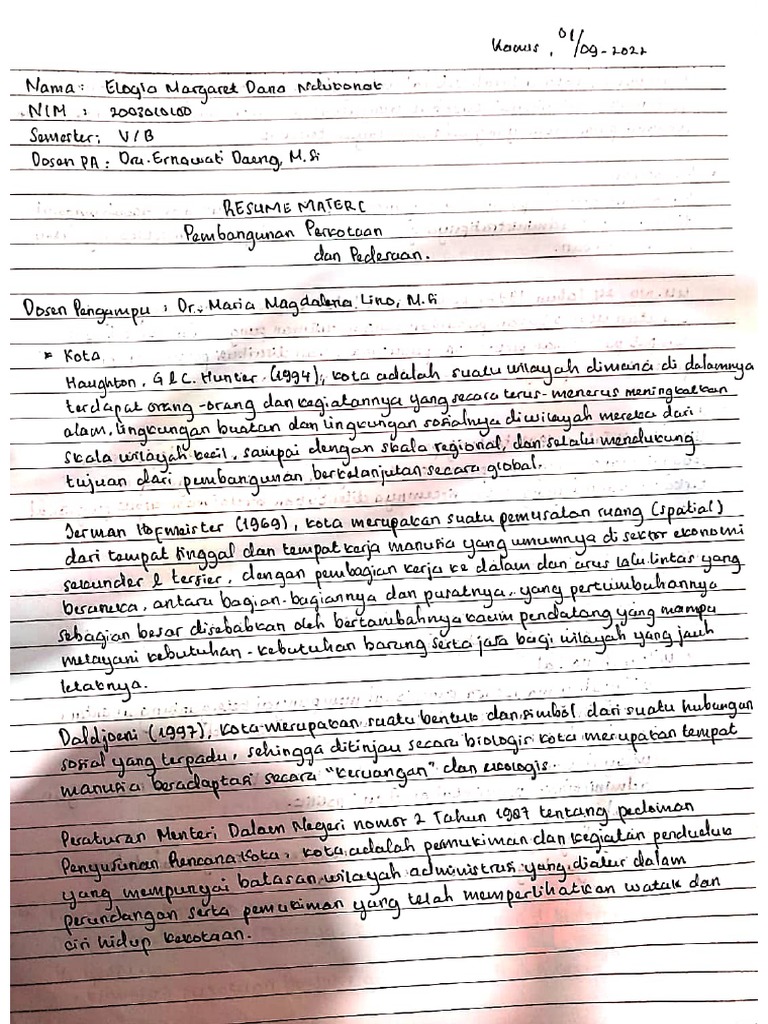 Kamis, 01/09-2022
Nama: Elogia Margaret Dana Ndubonat
NIM : 2003010100
Semester: V/B
Dosen PA : Dra. Ernawati Daeng, M.Si
RESUME MATERI
Pembangunan Perkotaan
dan Pedesaan.
Dosen Pengampu : Dr. Maria Magdalena Lino, M.Si
* Kota
Haughton, G & C. Hunter (1994), kota adalah suatu wilayah dimana di dalamnya
terdapat orang-orang dan kegiatannya yang secara terus-menerus meningkatkan
alam, lingkungan buatan dan lingkungan sosialnya diwilayah mereka dari
skala wilayah kecil, sampai dengan skala regional, dan selalu mendukung
tujuan dari pembangunan berkelanjutan secara global.
Jerman Hofmeister (1969), kota merupakan suatu pemusatan ruang (spatial)
dari tempat tinggal dan tempat kerja manusia yang umumnya di sektor ekonomi
sekunder & tersier, dengan pembagian kerja ke dalam dan arus lalu.lintas yang
beraneka, antara bagian-bagiannya dan pusatnya, yang pertumbuhannya
sebagian besar disebabkan oleh bertambahnya kaum pendatang yang mampu
melayani kebutuhan-kebutuhan barang serta jasa bagi wilayah yang jauh
letaknya.
Daldjoeni (1997), kota merupakan suatu bentuk dan simbol dari suatu hubungan
sosial yang terpadu, sehingga ditinjau secara biologis kota merupakan tempat
manusia beradaptasi secara "keruangan" dan ekologis.
Peraturan Menteri Dalam Negeri nomor 2 Tahun 1987 tentang pedoman
Penyusunan Rencana Kota, kota adalah pemukiman dan kegiatan penduduk
yang mempunyai batasan wilayah administrasi yang diatur dalam
perundangan serta pemukiman yang telah memperlihatkan watak dan
ciri hidup kekotaan.